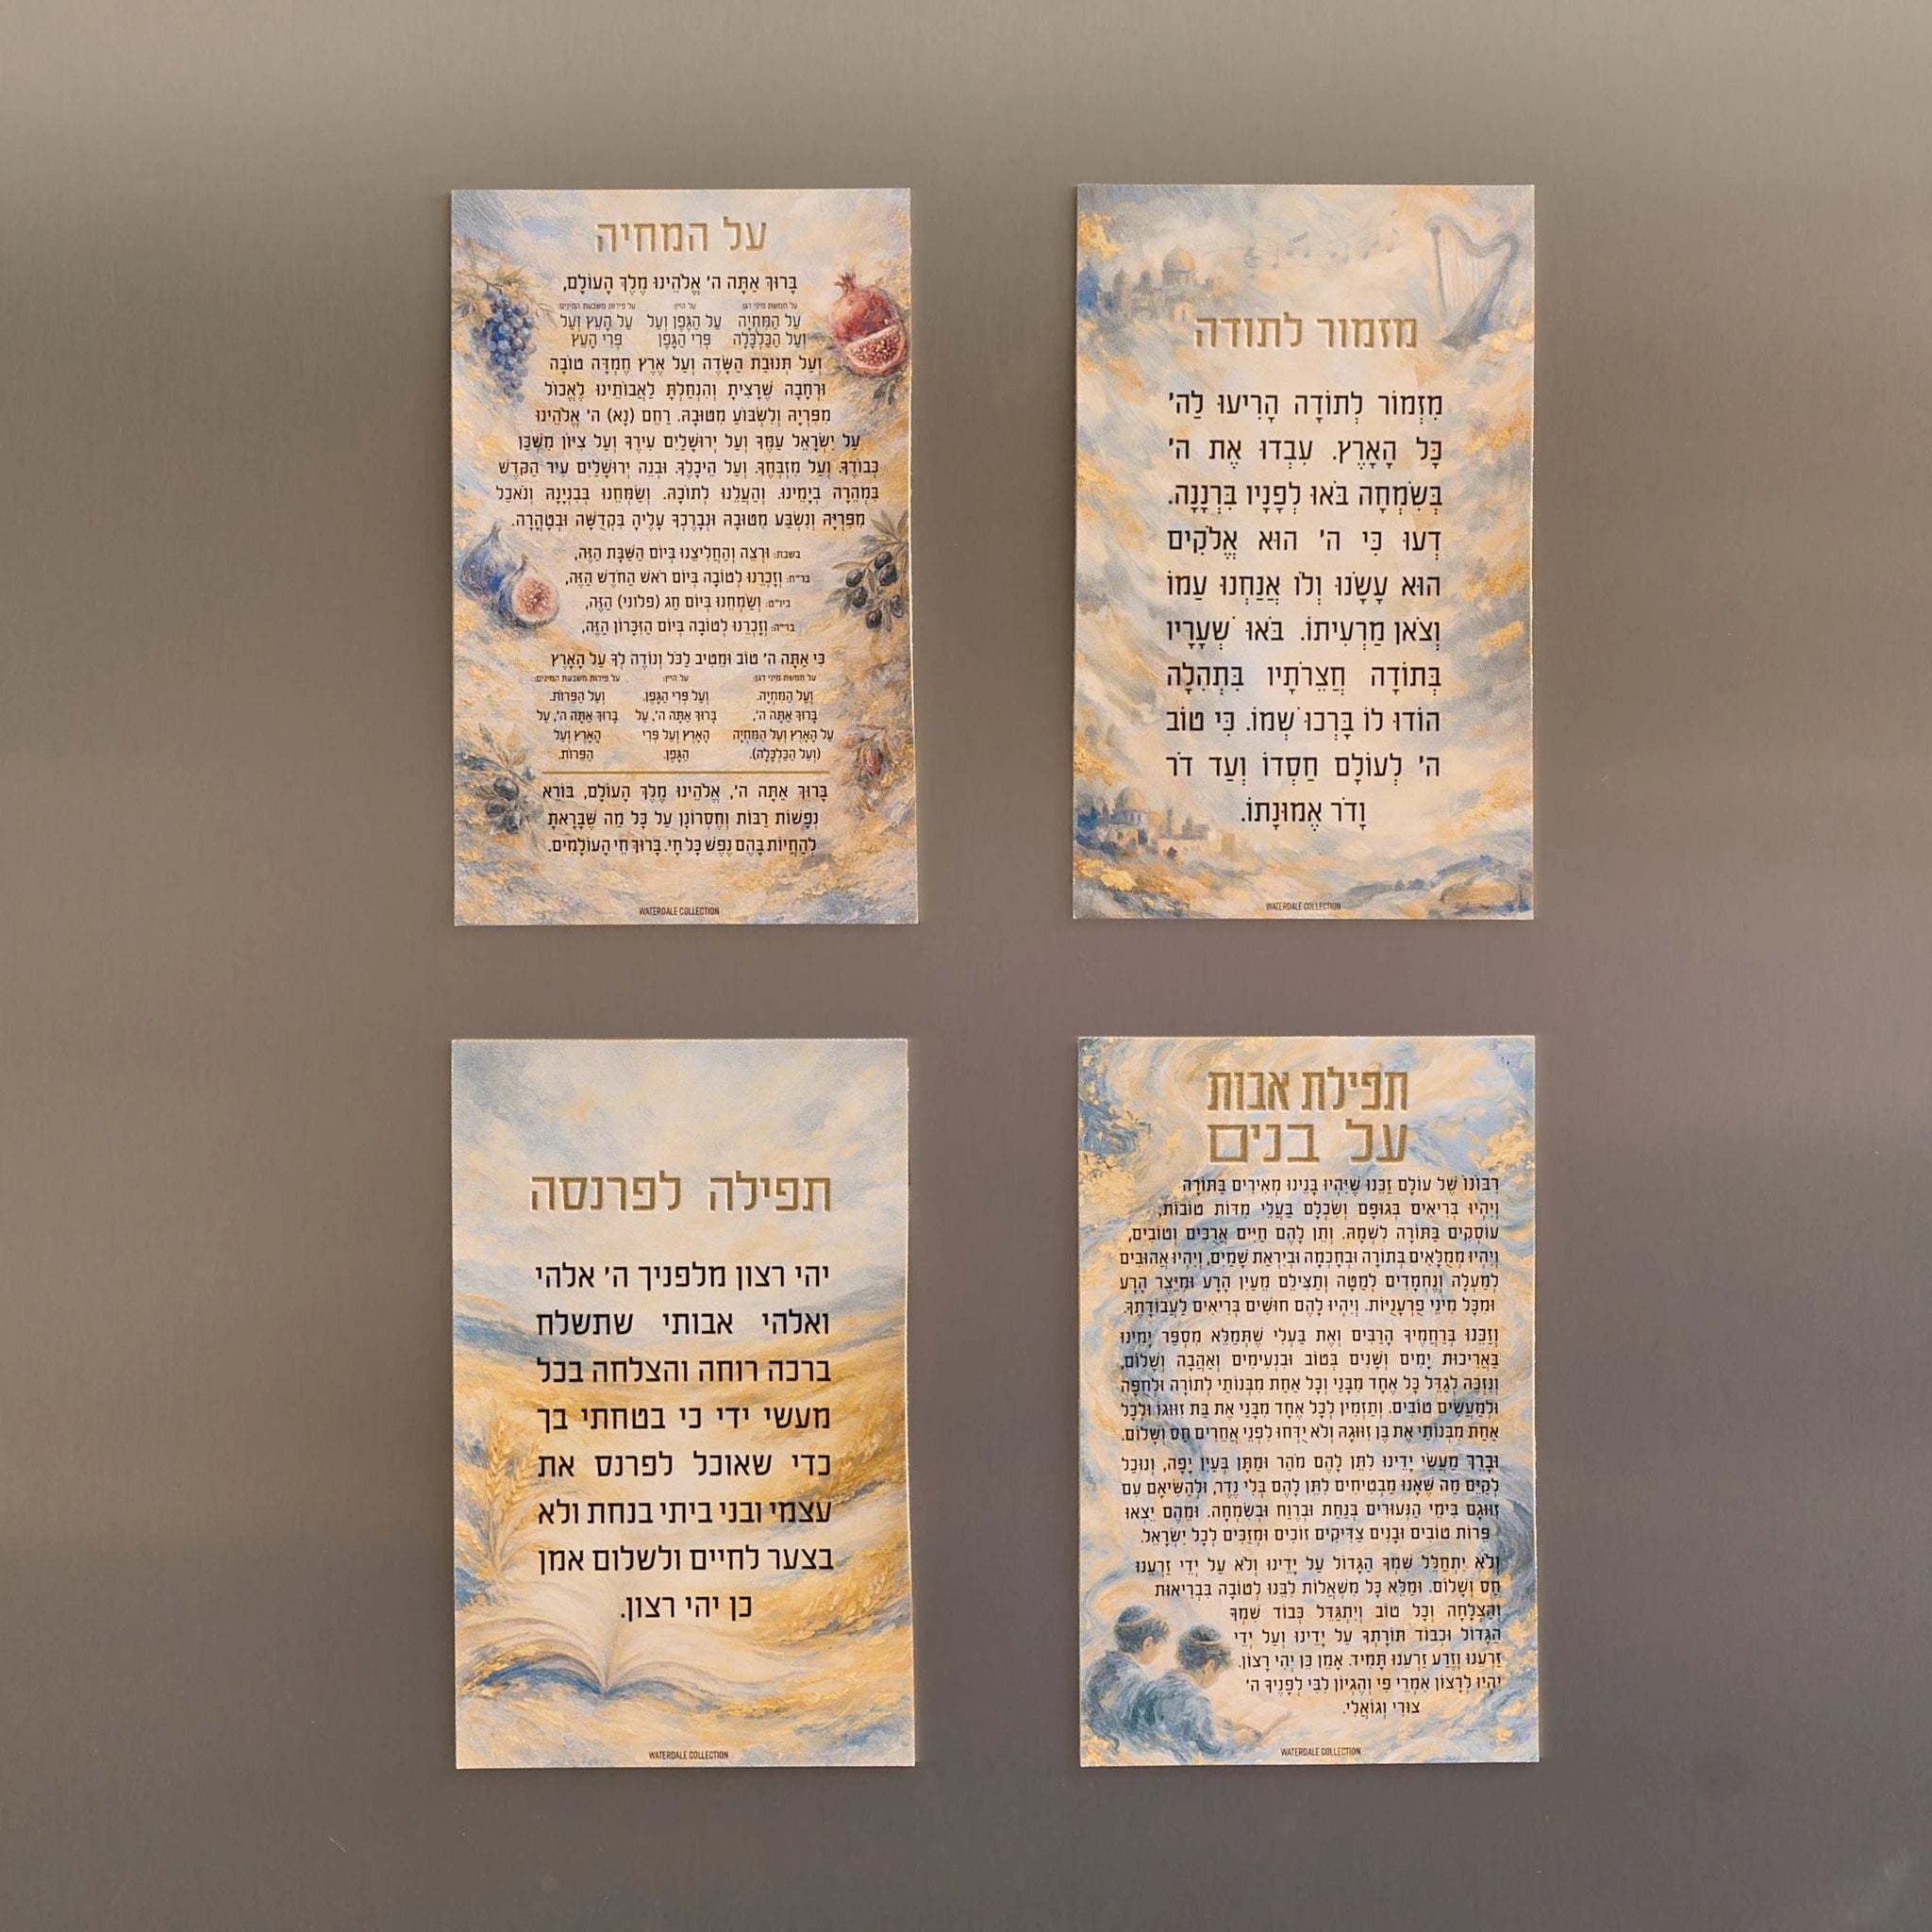 על המחיה
בָּרוּךְ אַתָּה ה' אֱלֹהֵינוּ מֶלֶךְ הָעוֹלָם,
על חמשת מיני דגן: על היין: על פירות משבעת המינים:
עַל הַמִּחְיָה עַל הַגֶּפֶן וְעַל עַל הָעֵץ וְעַל
וְעַל הַכַּלְכָּלָה פְּרִי הַגֶּפֶן פְּרִי הָעֵץ
וְעַל תְּנוּבַת הַשָּׂדֶה וְעַל אֶרֶץ חֶמְדָּה טוֹבָה
וּרְחָבָה שֶׁרָצִיתָ וְהִנְחַלְתָּ לַאֲבוֹתֵינוּ לֶאֱכוֹל
מִפִּרְיָהּ וְלִשְׂבּוֹעַ מִטּוּבָהּ. רַחֵם (נָא) ה' אֱלֹהֵינוּ
עַל יִשְׂרָאֵל עַמֶּךָ וְעַל יְרוּשָׁלַיִם עִירֶךָ וְעַל צִיּוֹן מִשְׁכַּן
כְּבוֹדֶךָ. וְעַל מִזְבְּחֶךָ. וְעַל הֵיכָלֶךָ. וּבְנֵה יְרוּשָׁלַיִם עִיר הַקֹּדֶשׁ
בִּמְהֵרָה בְיָמֵינוּ. וְהַעֲלֵנוּ לְתוֹכָהּ. וְשַׂמְּחֵנוּ בְּבִנְיָנָהּ וְנֹאכַל
מִפִּרְיָהּ וְנִשְׂבַּע מִטּוּבָהּ וּנְבָרֶכְךָ עָלֶיהָ בִּקְדֻשָּׁה וּבְטָהֳרָה.
בשבת: וּרְצֵה וְהַחֲלִיצֵנוּ בְּיוֹם הַשַּׁבָּת הַזֶּה,
בר"ח: וְזָכְרֵנוּ לְטוֹבָה בְּיוֹם רֹאשׁ הַחֹדֶשׁ הַזֶּה,
ביו"ט: וְשַׂמְּחֵנוּ בְּיוֹם חַג (פלוני) הַזֶּה,
בר"ה: וְזָכְרֵנוּ לְטוֹבָה בְּיוֹם הַזִּכָּרוֹן הַזֶּה,
כִּי אַתָּה ה' טוֹב וּמֵטִיב לַכֹּל וְנוֹדֶה לְּךָ עַל הָאָרֶץ
על חמשת מיני דגן: על היין: על פירות משבעת המינים:
וְעַל הַמִּחְיָה. וְעַל פְּרִי הַגֶּפֶן. וְעַל הַפֵּרוֹת.
בָּרוּךְ אַתָּה ה', בָּרוּךְ אַתָּה ה', עַל בָּרוּךְ אַתָּה ה', עַל
עַל הָאָרֶץ וְעַל הַמִּחְיָה הָאָרֶץ וְעַל פְּרִי הָאָרֶץ וְעַל
(וְעַל הַכַּלְכָּלָה). הַגֶּפֶן. הַפֵּרוֹת.
בָּרוּךְ אַתָּה ה', אֱלֹהֵינוּ מֶלֶךְ הָעוֹלָם, בּוֹרֵא
נְפָשׁוֹת רַבּוֹת וְחֶסְרוֹנָן עַל כָּל מַה שֶּׁבָּרָאתָ
לְהַחֲיוֹת בָּהֶם נֶפֶשׁ כָּל חָי. בָּרוּךְ חֵי הָעוֹלָמִים.
WATERDALE COLLECTION
מזמור לתודה
מִזְמוֹר לְתוֹדָה הָרִיעוּ לַה'
כָּל הָאָרֶץ. עִבְדוּ אֶת ה'
בְּשִׂמְחָה בֹּאוּ לְפָנָיו בִּרְנָנָה.
דְּעוּ כִּי ה' הוּא אֱלֹקִים
הוּא עָשָׂנוּ וְלוֹ אֲנַחְנוּ עַמּוֹ
וְצֹאן מַרְעִיתוֹ. בֹּאוּ שְׁעָרָיו
בְּתוֹדָה חֲצֵרֹתָיו בִּתְהִלָּה
הוֹדוּ לוֹ בָּרְכוּ שְׁמוֹ. כִּי טוֹב
ה' לְעוֹלָם חַסְדּוֹ וְעַד דֹּר
וָדֹר אֱמוּנָתוֹ.
WATERDALE COLLECTION
תפילה לפרנסה
יהי רצון מלפניך ה' אלהי
ואלהי אבותי שתשלח
ברכה רוחה והצלחה בכל
מעשי ידי כי בטחתי בך
כדי שאוכל לפרנס את
עצמי ובני ביתי בנחת ולא
בצער לחיים ולשלום אמן
כן יהי רצון.
WATERDALE COLLECTION
תפילת אבות
על בנים
רִבּוֹנוֹ שֶׁל עוֹלָם זַכֵּנוּ שֶׁיִּהְיוּ בָּנֵינוּ מְאִירִים בַּתּוֹרָה
וְיִהְיוּ בְּרִיאִים בְּגוּפָם וְשִׂכְלָם בַּעֲלֵי מִדּוֹת טוֹבוֹת,
עוֹסְקִים בַּתּוֹרָה לִשְׁמָהּ. וְתֵן לָהֶם חַיִּים אֲרֻכִּים וְטוֹבִים,
וְיִהְיוּ מְמֻלָּאִים בְּתוֹרָה וּבְחָכְמָה וּבְיִרְאַת שָׁמַיִם, וְיִהְיוּ אֲהוּבִים
לְמַעְלָה וְנֶחְמָדִים לְמַטָּה וְתַצִּילֵם מֵעַיִן הָרָע וּמִיֵּצֶר הָרָע
וּמִכָּל מִינֵי פֻּרְעָנֻיּוֹת. וְיִהְיוּ לָהֶם חוּשִׁים בְּרִיאִים לַעֲבוֹדָתֶךָ.
וְזַכֵּנוּ בְּרַחֲמֶיךָ הָרַבִּים וְאֶת בַּעְלִי שֶׁתְּמַלֵּא מִסְפַּר יָמֵינוּ
בַּאֲרִיכוּת יָמִים וְשָׁנִים בְּטוֹב וּבִנְעִימִים וְאַהֲבָה וְשָׁלוֹם,
וְנִזְכֶּה לְגַדֵּל כָּל אֶחָד מִבָּנַי וְכָל אַחַת מִבְּנוֹתַי לְתוֹרָה וּלְחֻפָּה
וּלְמַעֲשִׂים טוֹבִים. וְתַזְמִין לְכָל אֶחָד מִבָּנַי אֶת בַּת זוּוגוֹ וּלְכָל
אַחַת מִבְּנוֹתַי אֶת בֶּן זִוּוּגָהּ וְלֹא יִדָּחוּ לִפְנֵי אֲחֵרִים חַס וְשָׁלוֹם.
וּבָרֵךְ מַעֲשֵׂי יָדֵינוּ לִתֵּן לָהֶם מֹהַר וּמַתָּן בְּעַיִן יָפָה, וְנוּכַל
לְקַיֵּם מַה שֶּׁאָנוּ מַבְטִיחִים לִתֵּן לָהֶם בְּלִי נֶדֶר, וּלְהַשִּׂיאָם עִם
זִוּוּגָם בִּימֵי הַנְּעוּרִים בְּנַחַת וּבְרֶוַח וּבְשִׂמְחָה. וּמֵהֶם יֵצְאוּ
פֵּרוֹת טוֹבִים וּבָנִים צַדִּיקִים זוֹכִים וּמְזַכִּים לְכָל יִשְׂרָאֵל.
וְלֹא יִתְחַלֵּל שִׁמְךָ הַגָּדוֹל עַל יָדֵינוּ וְלֹא עַל יְדֵי זַרְעֵנוּ
חַס וְשָׁלוֹם. וּמַלֵּא כָּל מִשְׁאֲלוֹת לִבֵּנוּ לְטוֹבָה בִּבְרִיאוּת
וְהַצְלָחָה וְכָל טוֹב וְיִתְגַּדֵּל כְּבוֹד שִׁמְךָ
הַגָּדוֹל וּכְבוֹד תּוֹרָתְךָ עַל יָדֵינוּ וְעַל יְדֵי
זַרְעֵנוּ וְזֶרַע זַרְעֵנוּ תָּמִיד. אָמֵן כֵּן יְהִי רָצוֹן.
יִהְיוּ לְרָצוֹן אִמְרֵי פִי וְהֶגְיוֹן לִבִּי לְפָנֶיךָ ה'
צוּרִי וְגוֹאֲלִי.
WATERDALE COLLECTION